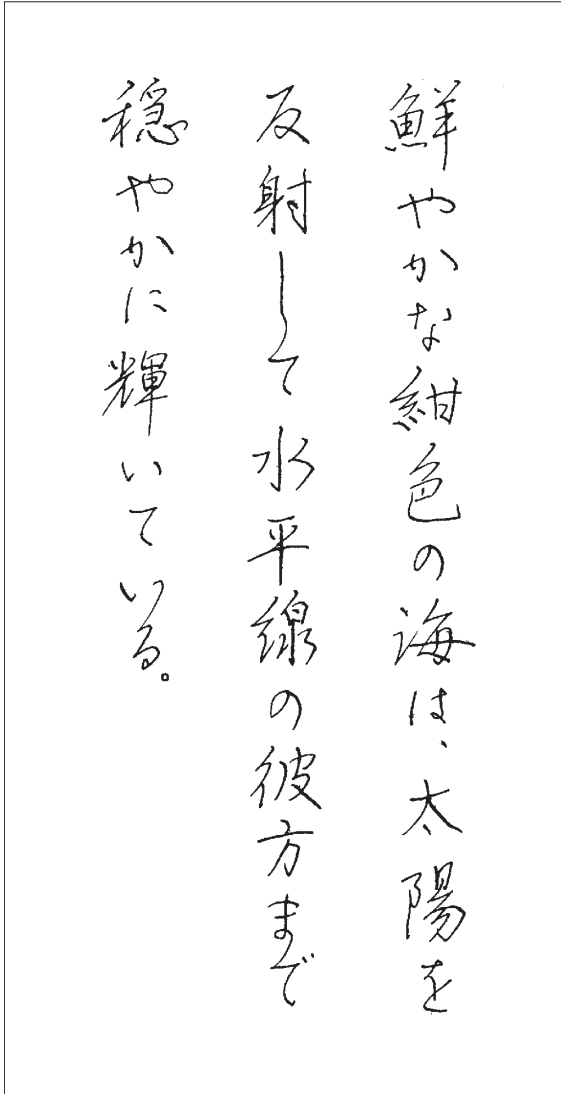 鮮やかな紺色の海は、太陽を
反射して水平線の彼方まで
穏やかに輝いている。